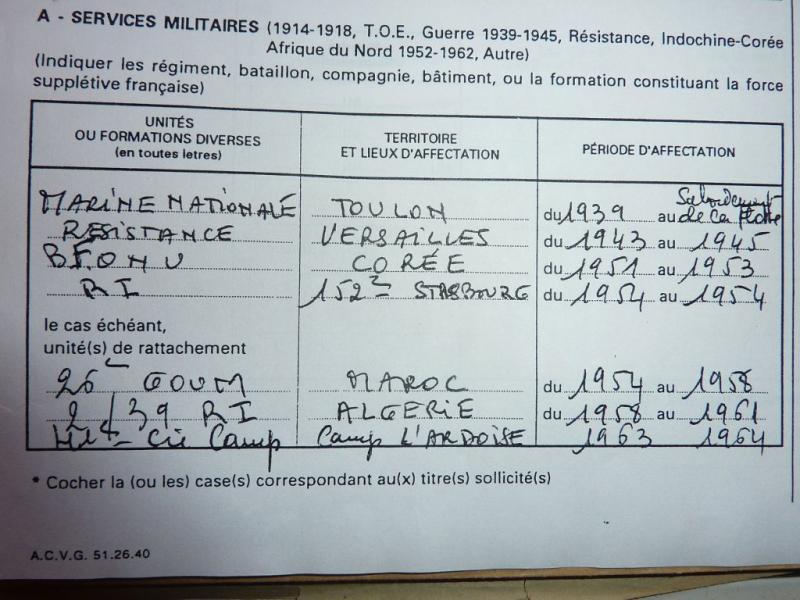 A - SERVICES MILITAIRES (1914-1918, T.O.E., Guerre 1939-1945, Résistance, Indochine-Corée
Afrique du Nord 1952-1962, Autre)
(Indiquer les régiment, bataillon, compagnie, bâtiment, ou la formation constituant la force
supplétive française)
UNITÉS
OU FORMATIONS DIVERSES
(en toutes letres)
TERRITOIRE
ET LIEUX D'AFFECTATION
PÉRIODE D'AFFECTATION
MARINE NATIONALE TOULON du 1939 au Sabordement de la flotte
RESISTANCE VERSAILLES du 1943 au 1945
B.F. ONU CORÉE du 1951 au 1953
RI 152e STASBOURG du 1954 au 1954
le cas échéant,
unité(s) de rattachement
26e GOUM MAROC du 1954 au 1958
2/39 RI ALGERIE du 1958 au 1961
Cie Camp Camp L'ARDOISE 1963 1964
* Cocher la (ou les) case(s) correspondant au(x) titre(s) sollicité(s)
A.C.V.G. 51.26.40